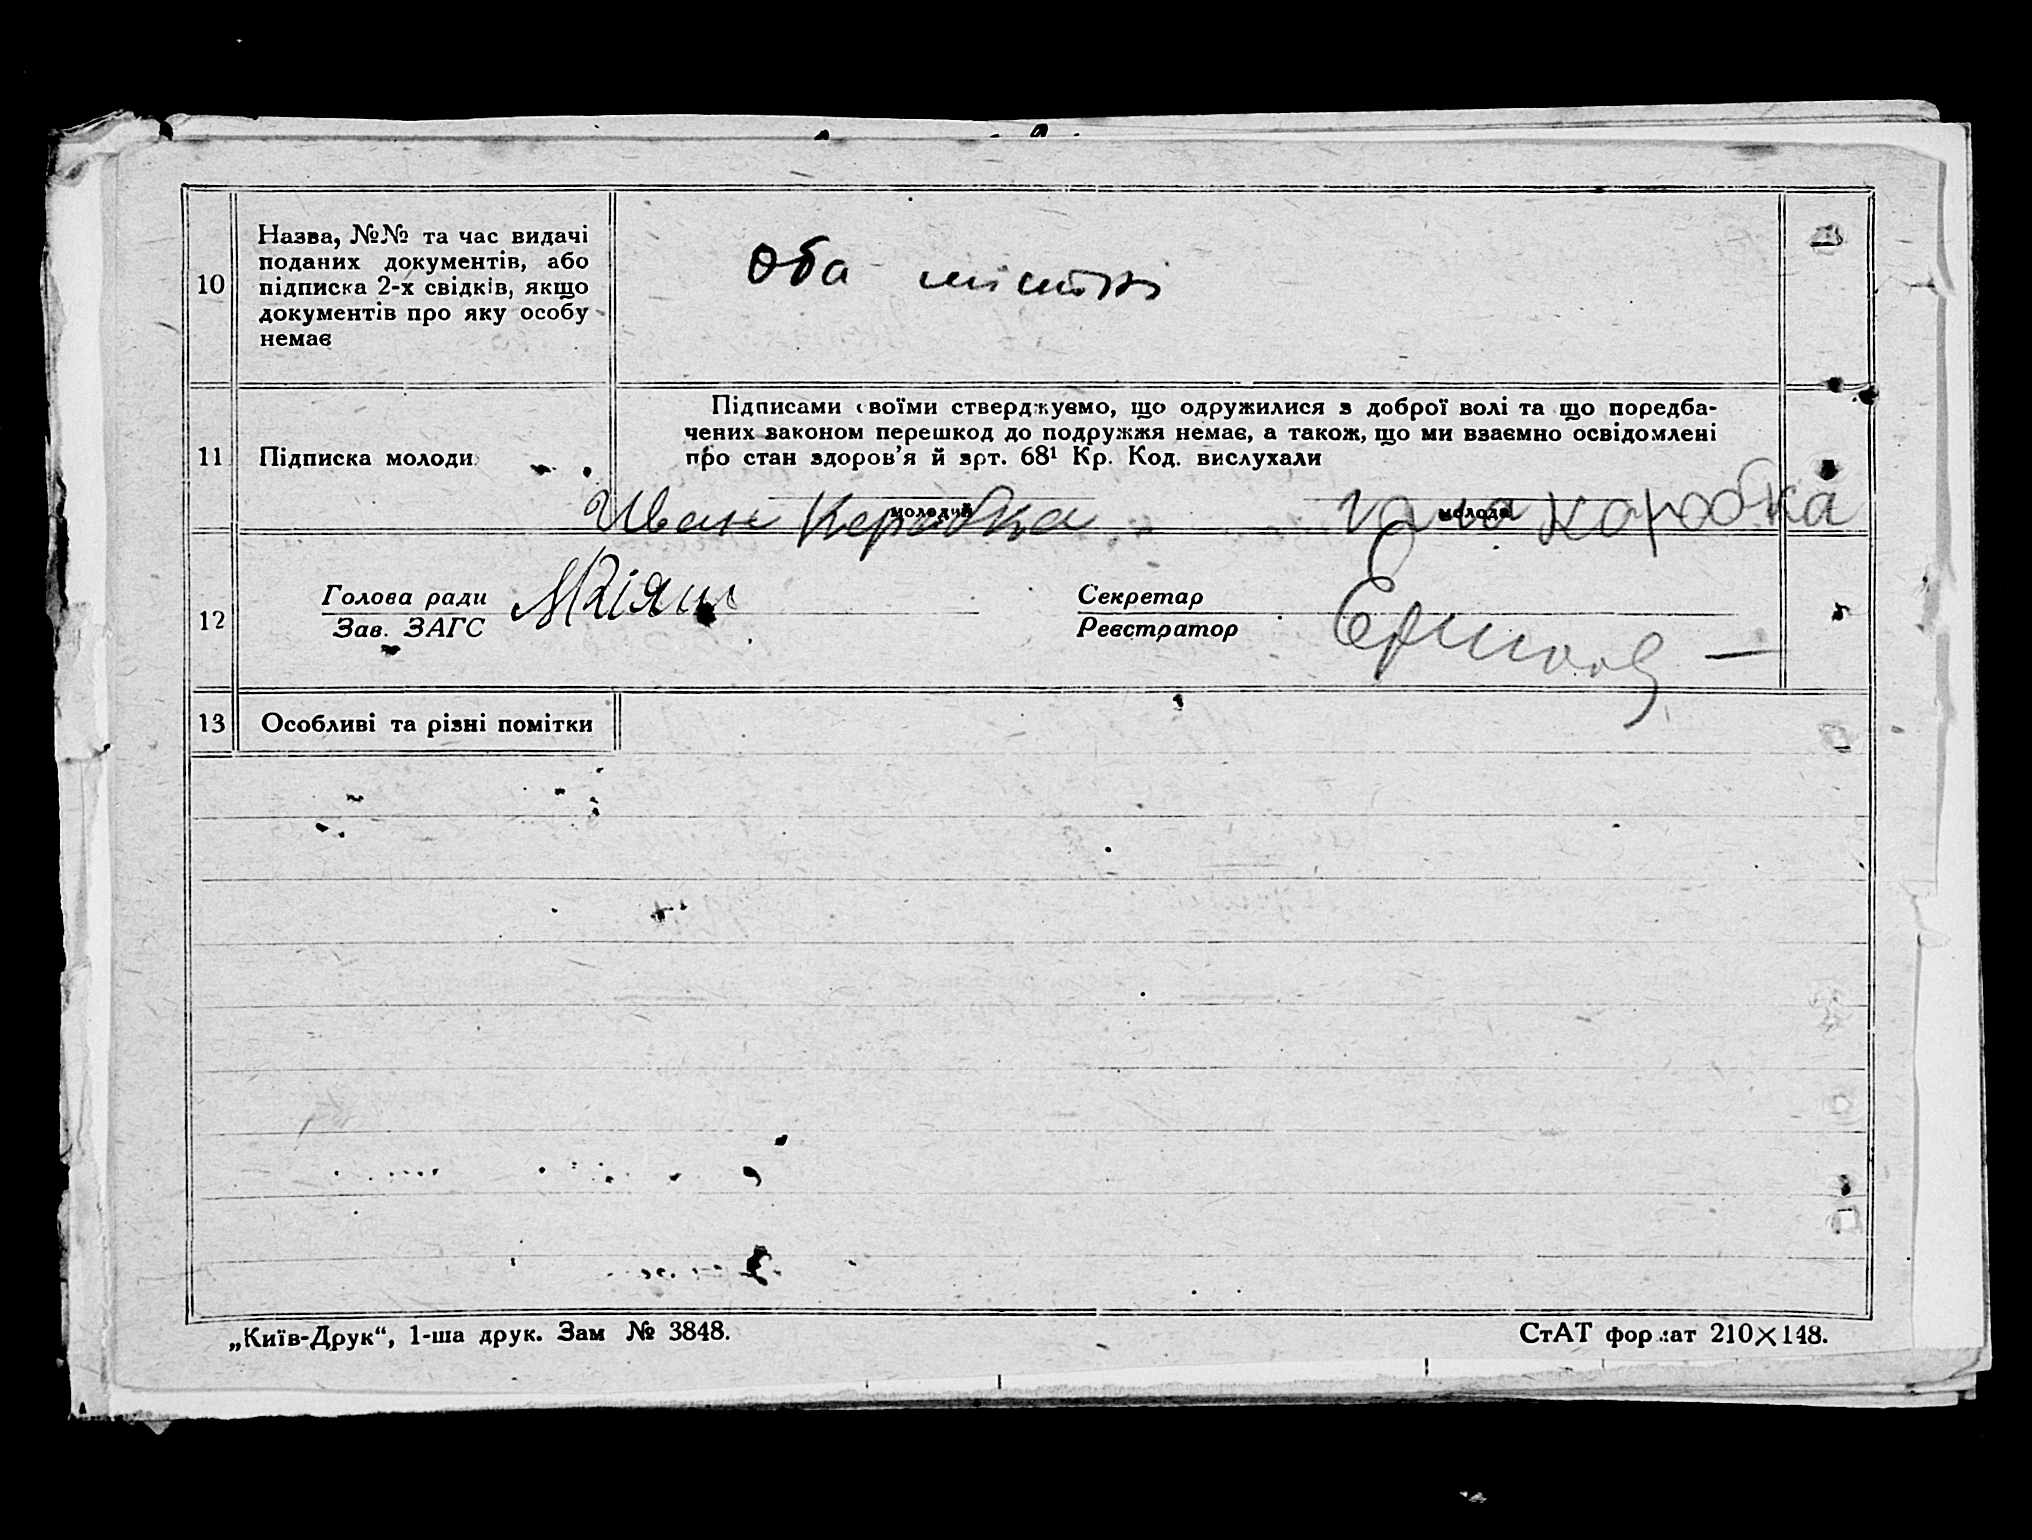 10
Назва, №№ та час видачі
поданих документів, або
підписка 2-х свідків, якщо
документів про яку особу
немає
Оба місцеві
11
Підписка молоди
Підписами своїми стверджуємо, що одружилися з доброї волі та що поредба-
чених законом перешкод до подружжя немає, а також, що ми взаємно освідомлені
про стан здоров'я й арт. 68¹ Кр. Код. вислухали
молодий
молода
Иван Коробка
Коробка
12
Голова ради
Зав. ЗАГС
Секретар
Реєстратор
13
Особливі та різні помітки
„Київ-Друк“, 1-ша друк. Зам № 3848.
СтАТ формат 210×148.